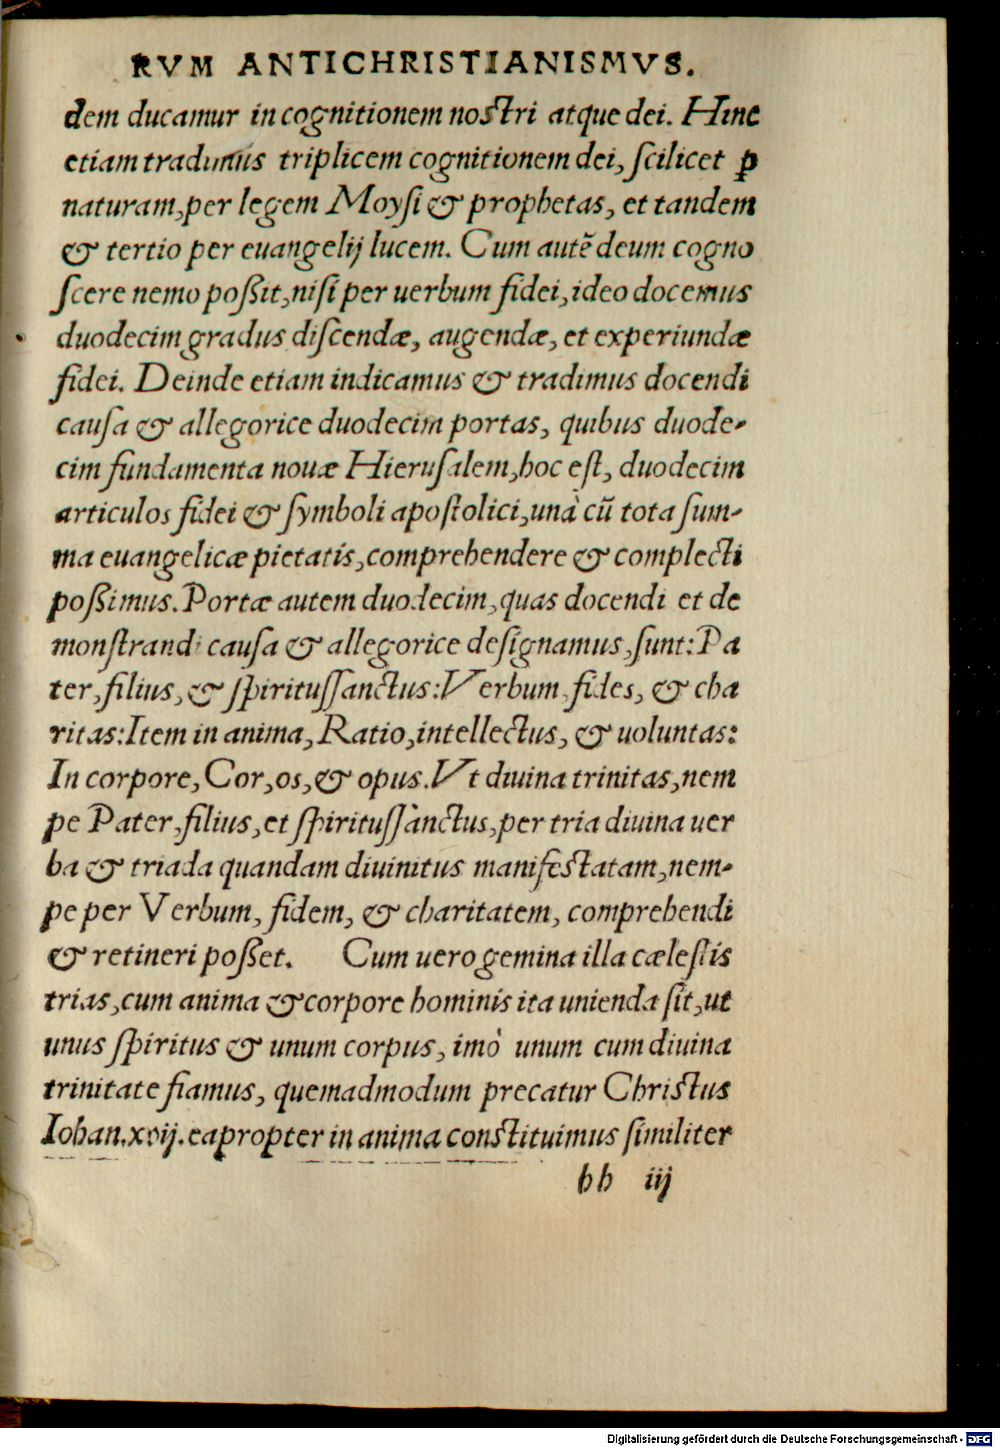 RVM ANTICHRISTIANISMVS.
dem ducamur in cognitionem nostri atque dei. Hinc
etiam tradimus triplicem cognitionem dei, ſcilicet ꝑ
naturam, per legem Moyſi & prophetas, et tandem
& tertio per euangelij lucem. Cum autẽ deum cogno
ſcere nemo poßit, niſi per uerbum fidei, ideo docemus
duodecim gradus diſcendæ, augendæ, et experiundæ
fidei. Deinde etiam indicamus & tradimus docendi
cauſa & allegorice duodecim portas, quibus duode-
cim fundamenta nouæ Hieruſalem, hoc eſt, duodecim
articulos fidei & ſymboli apoſtolici, unà cũ tota ſum-
ma euangelicæ pietatis, comprehendere & complecti
poßimus. Portæ autem duodecim, quas docendi et de
monſtrandi cauſa & allegorice deſignamus, ſunt: Pa
ter, filius, & ſpirituſſanctus: Verbum, fides, & cha
ritas: Item in anima, Ratio, intellectus, & uoluntas:
In corpore, Cor, os, & opus. Vt diuina trinitas, nem
pe Pater, filius, et ſpirituſſanctus, per tria diuina uer
ba & triada quandam diuinitus manifeſtatam, nem-
pe per Verbum, fidem, & charitatem, comprehendi
& retineri poßet. Cum uero gemina illa cæleſtis
trias, cum anima & corpore hominis ita unienda ſit, ut
unus ſpiritus & unum corpus, imò unum cum diuina
trinitate fiamus, quemadmodum precatur Chriſtus
Iohan. xvij. eapropter in anima conſtituimus ſimiliter
bb iij
Digitalisierung gefördert durch die Deutsche Forschungsgemeinschaft - DFG